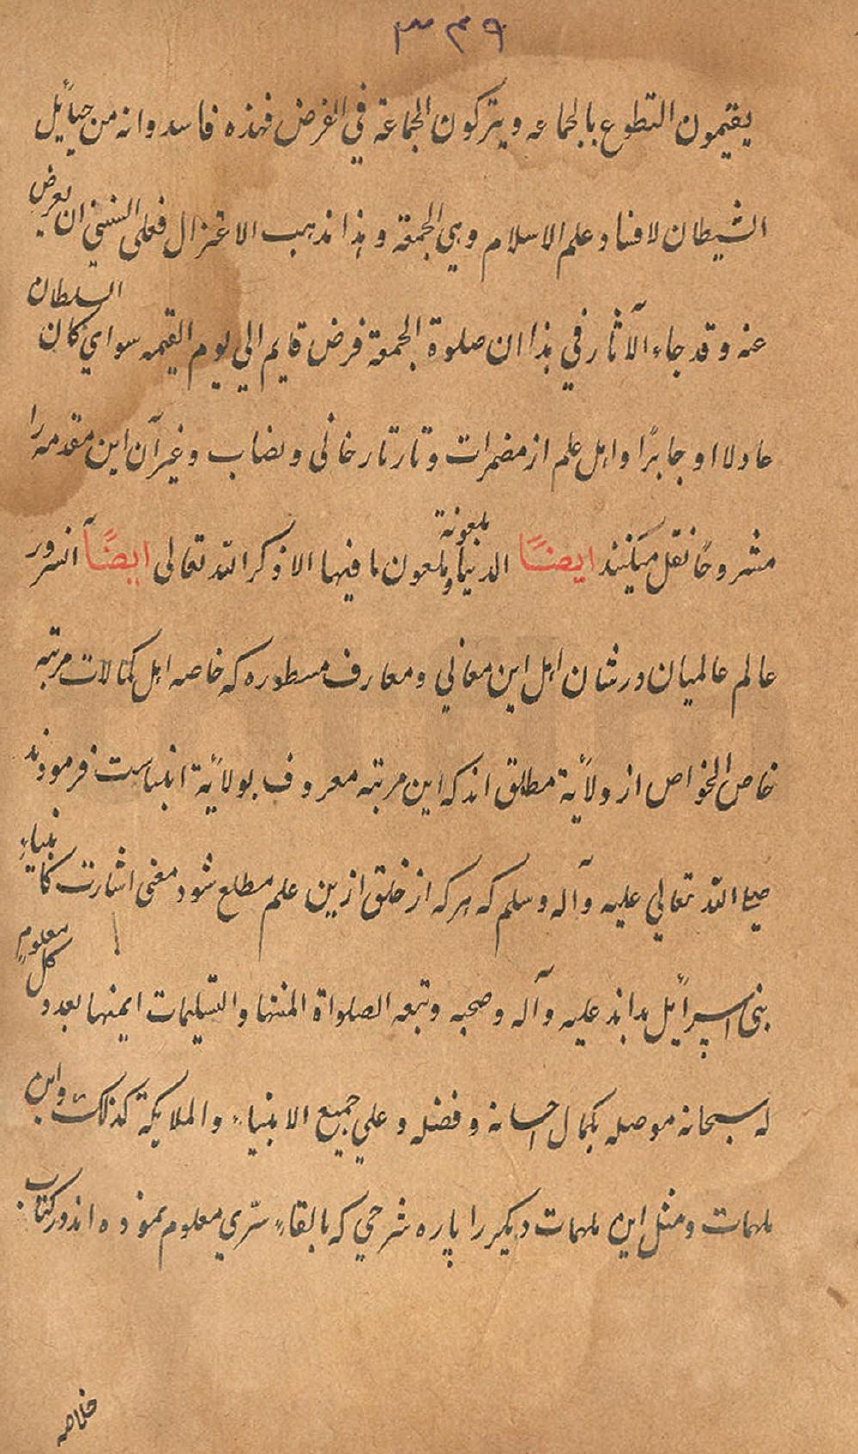 ٣٤٩
يقيمون التطوع بالجماعه ويتركون الجماعة في الفرض فهذه فاسد وانه من حبأيل
الشيطان لافناد علم الاسلام وهي الجمعة وهذا مذهب الاعتزال فعلى السني ان يعرض
عنه وقد جاء الآثار في هذا ان صلوة الجمعة فرض قايم الي يوم القيمه سواي كان السلطان
عادلا او جابرًا واهل علم از مضمرات وتارتارخاني ونصاب وغير آن اين مقدمه را
مشروحًا نقل ميكنند ايضًا الدنيا ملعونة وملعون ما فيها الا ذكر الله تعالى ايضًا آنسرور
عالم عالميان در شان اهل اين معاني ومعارف مسطوره كه خاصه اهل كمالات مرتبه
خاص الخواص از ولأية مطلق اند كه اين مرتبه معروف بولأية انبياست فرمودند
صلي الله تعالي عليه وآله وسلم كه هر كه از خلق ازين علم مطلع شود معنى اشارت كانبياء
بنى اسرأيل بداند عليه وآله وصحبه وتبعه الصلواة المنتها والتسليمات ايمنها بعدد كل معلوم
له سبحانه موصله بكمال احسانه وفضله وعلي جميع الانبياء والملايكة كذلك واين
ملهمات ومثل اين ملهمات ديكر را پاره شرحي كه بالقاء سرّي معلوم نموده اند در كتاب
خلاصه